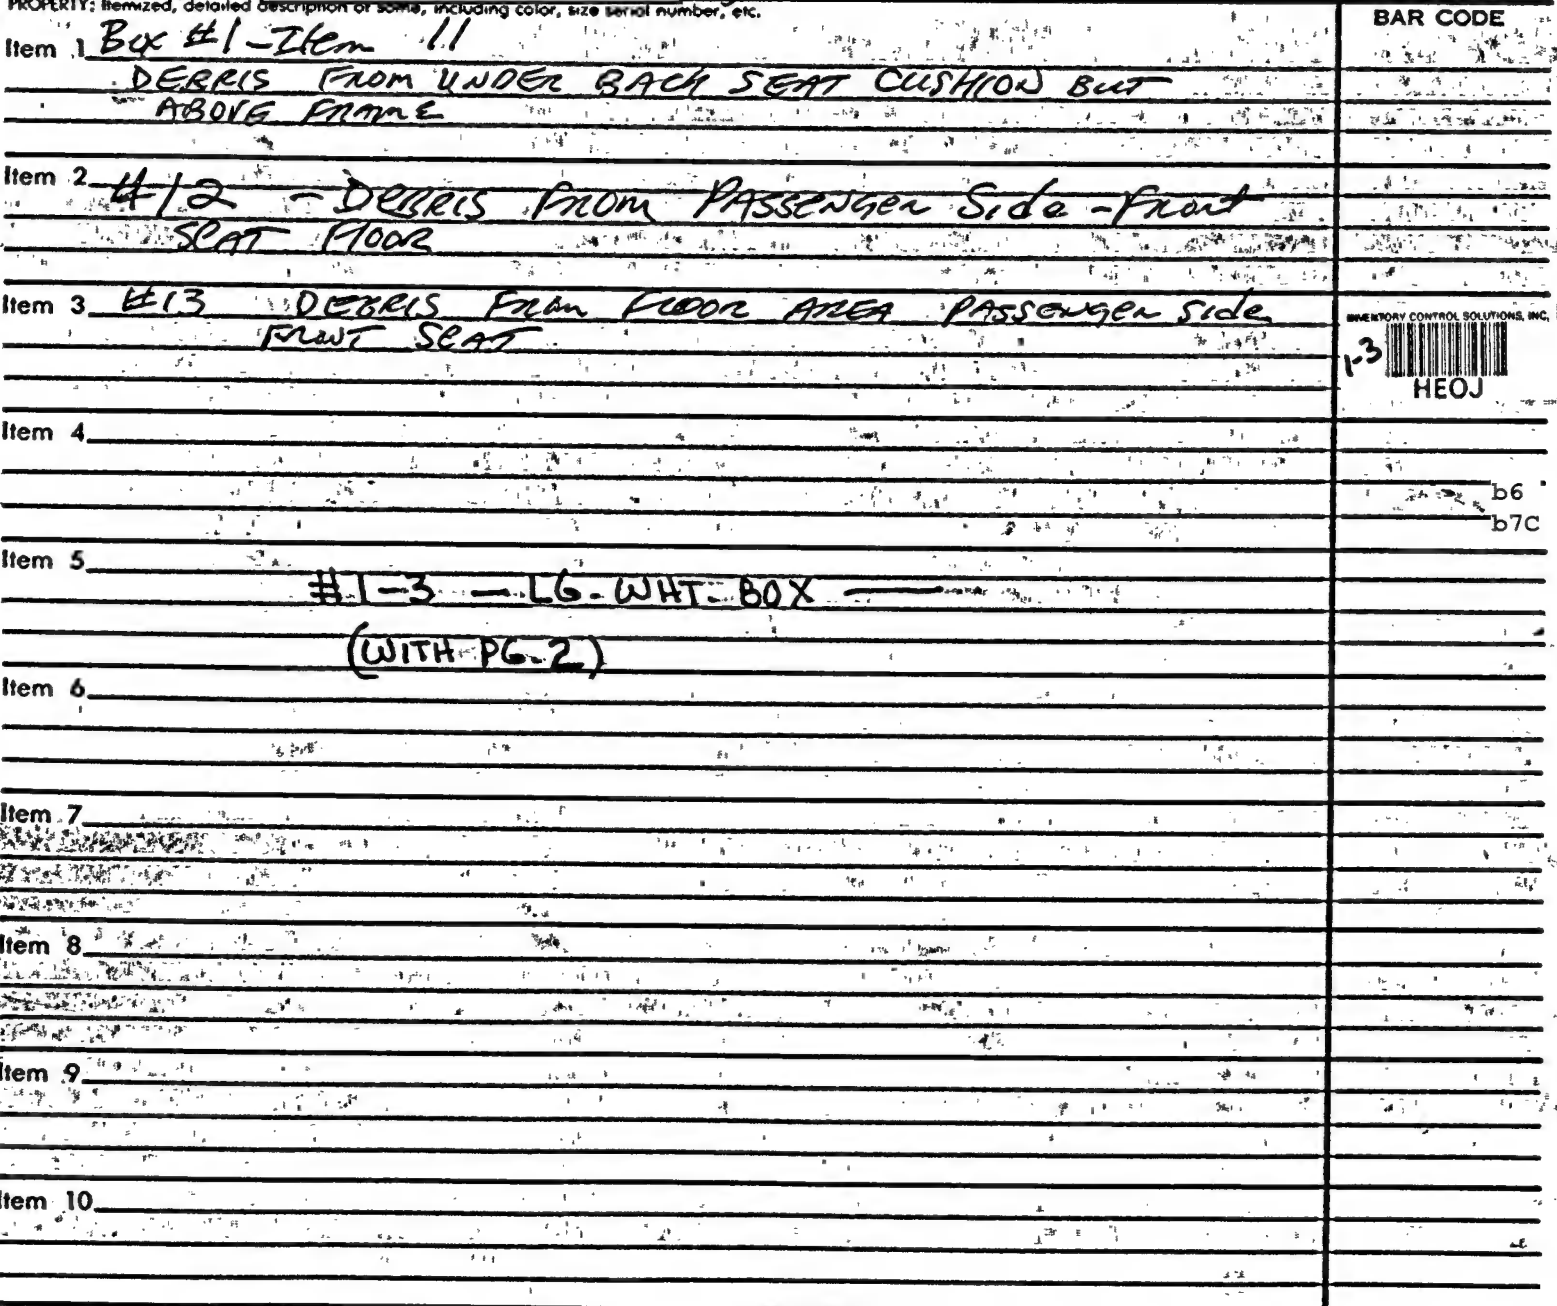 PROPERTY: Itemized, detailed description of some, including color, size serial number, etc.
BAR CODE
Item 1 Box #1-Item 11
DEBRIS FROM UNDER BACK SEAT CUSHION BUT
ABOVE FRAME
Item 2 #12 - DEBRIS FROM PASSENGER Side - Front
SEAT FLOOR
Item 3 #13 DEBRIS FROM FLOOR AREA PASSENGER Side
FRONT SEAT
INVENTORY CONTROL SOLUTIONS, INC.
1-3
HEOJ
Item 4
b6
b7C
Item 5
#1-3 — LG. WHT. BOX —
(WITH PG. 2)
Item 6
Item 7
Item 8
Item 9
Item 10